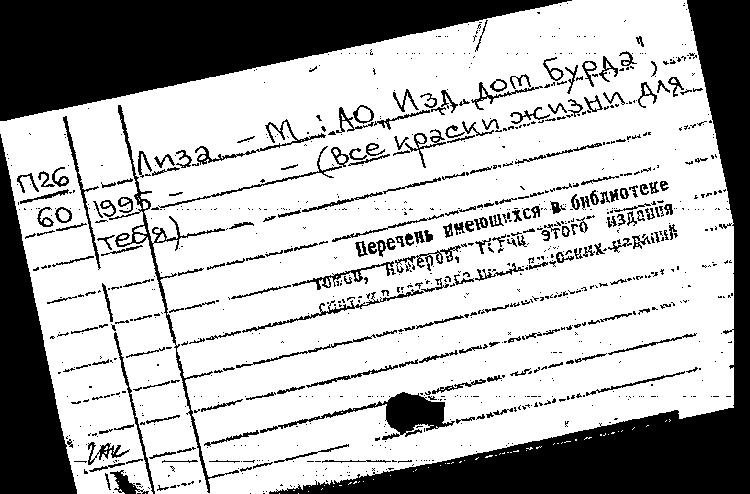 Лиза. - М.: АО „Изд. дом Бурда",
П26
60
1995 - . - (Все краски жизни для
тебя)
Перечень имеющихся в библиотеке
томов, номеров, этого издания
изданий
2АК